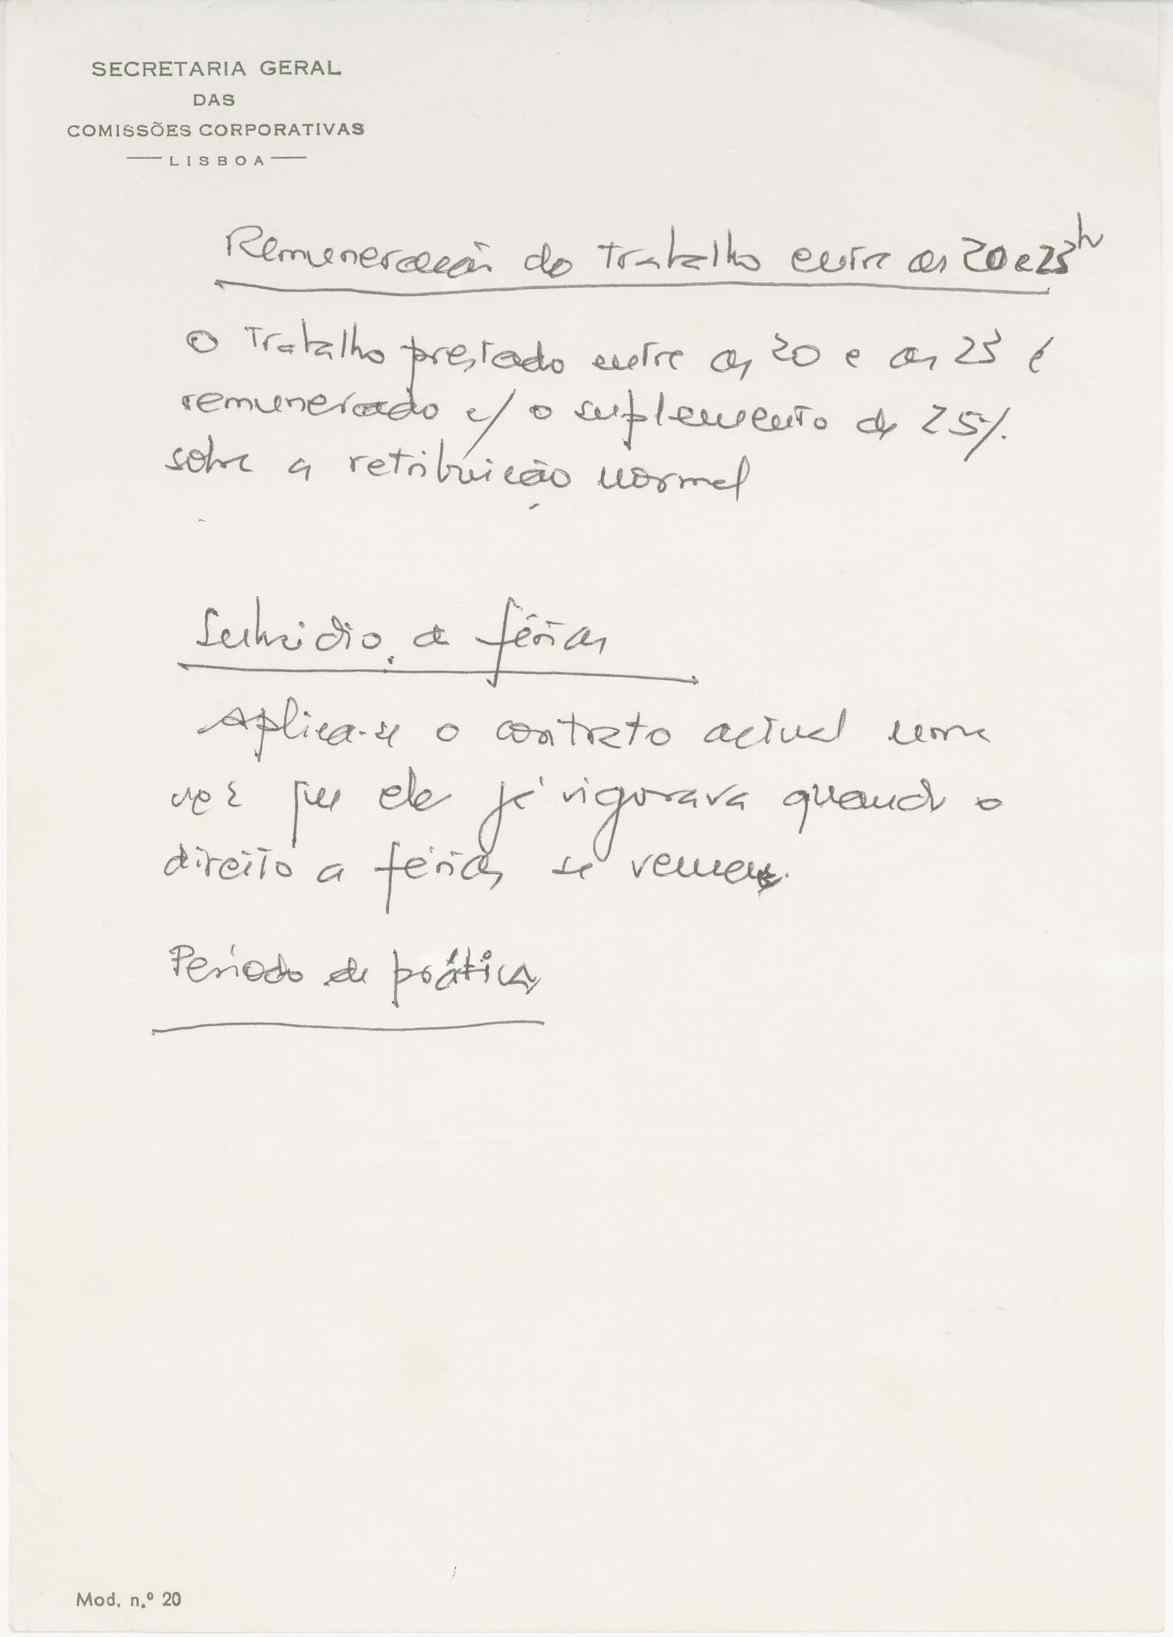 SECRETARIA GERAL
DAS
COMISSÕES CORPORATIVAS
LISBOA
Remuneração do trabalho entre as 20 e 23h
O trabalho prestado entre as 20 e as 23 é
remunerado c/ o suplemento de 25%
sobre a retribuição normal
Subsídio de férias
Aplica-se o contrato actual uma
vez que ele já vigorava quando o
direito a férias se venceu.
Período de prática
Mod. n.º 20